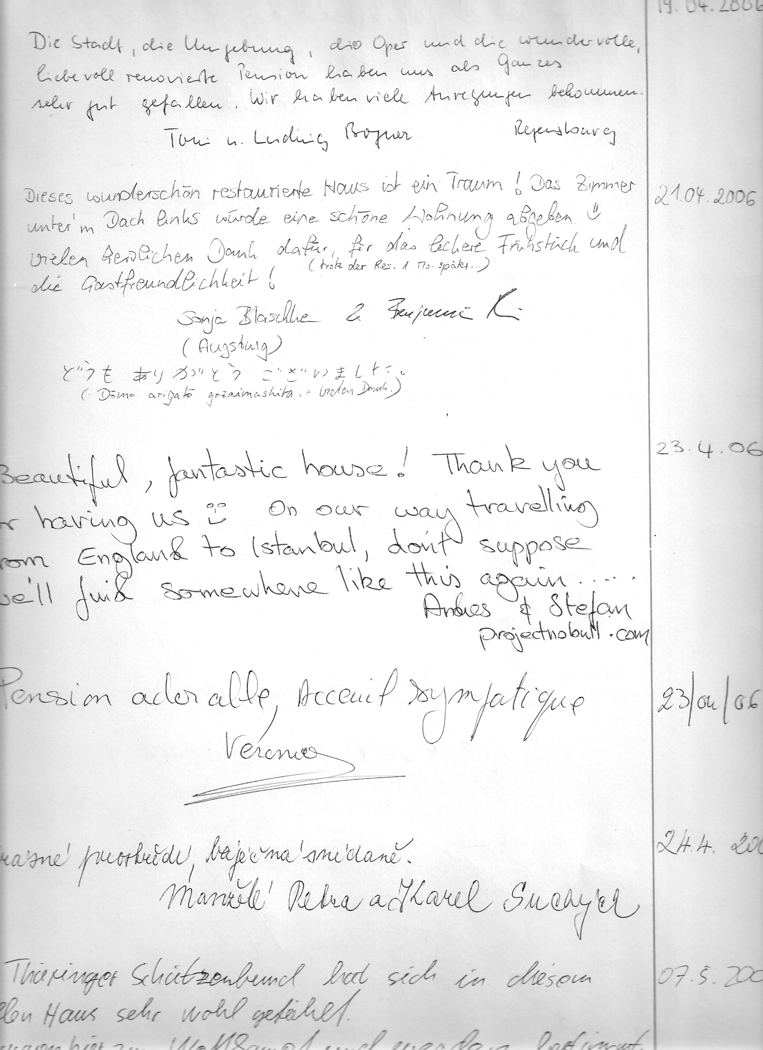 19.04.2006
Die Stadt, die Umgebung, die Oper und die wundervolle,
liebevoll renovierte Pension haben uns als Ganzes
sehr gut gefallen. Wir haben viele Anregungen bekommen.
Toni u. Ludwig Bogner Regensburg
21.04.2006
Dieses wunderschön restaurierte Haus ist ein Traum! Das Zimmer
unter'm Dach links würde eine schöne Wohnung abgeben ☺
vielen herzlichen Dank dafür, für das leckere Frühstück und
(trotz der Res. 1 Mo. später..)
die Gastfreundlichkeit!
Sonja Blaschke & Benjamin
(Augsburg)
どうも ありがとう ございました。
(Dōmo arigatō gozaimashita. = Vielen Dank.)
23.4.06
Beautiful, fantastic house! Thank you
r having us ☺ On our way travelling
rom England to Istanbul, don't suppose
we'll find somewhere like this again.....
& Stefan
projectnobull.com
23/04/06
Pension adorable, Acceuil sympatique
24.4. 200
rásné prostředí, báječná snídaně.
Manželé Petra a Karel
07.5.200
Thüringer Schützenbund hat sich in diesem
llen Haus sehr wohl gefühlt.
und werden bestimmt